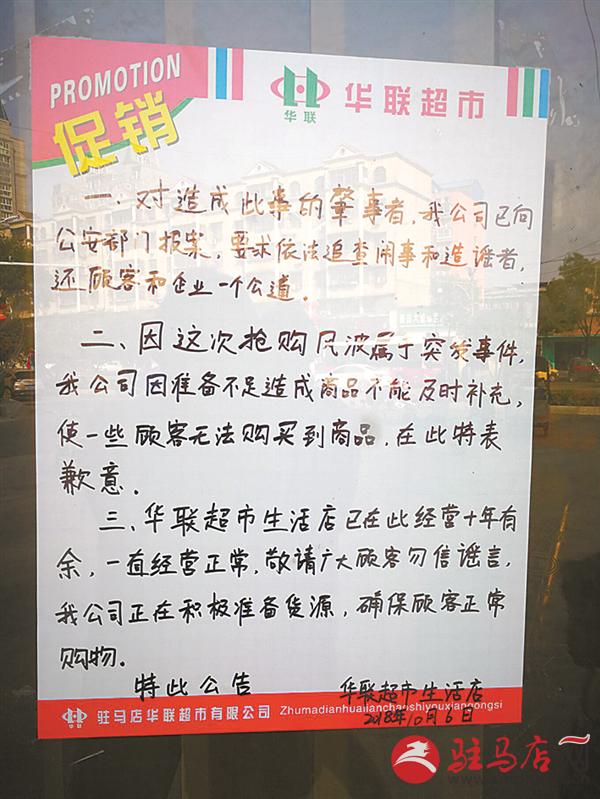 PROMOTION
促销
华联
华联超市
一.对造成此事的肇事者,我公司已向
公安部门报案,要求依法追查闹事和造谣者,
还顾客和企业一个公道。
二、因这次抢购风波属于突发事件,
我公司因准备不足造成商品不能及时补充,
使一些顾客无法购买到商品,在此特表
歉意。
三、华联超市生活店已在此经营十年有
余,一直经营正常,敬请广大顾客勿信谣言,
我公司正在积极准备货源,确保顾客正常
购物。
特此公告 华联超市生活店
2018年10月6日
驻马店华联超市有限公司 Zhumadianhualianchaoshiyouxiangongsi
驻马店网